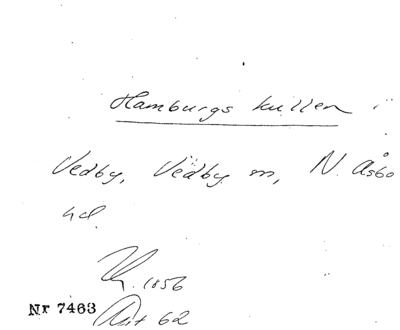 Hamburgs kullen
Vedby, Vedby sn, N. Åsbo
hd.
1856
Nr 7463
62